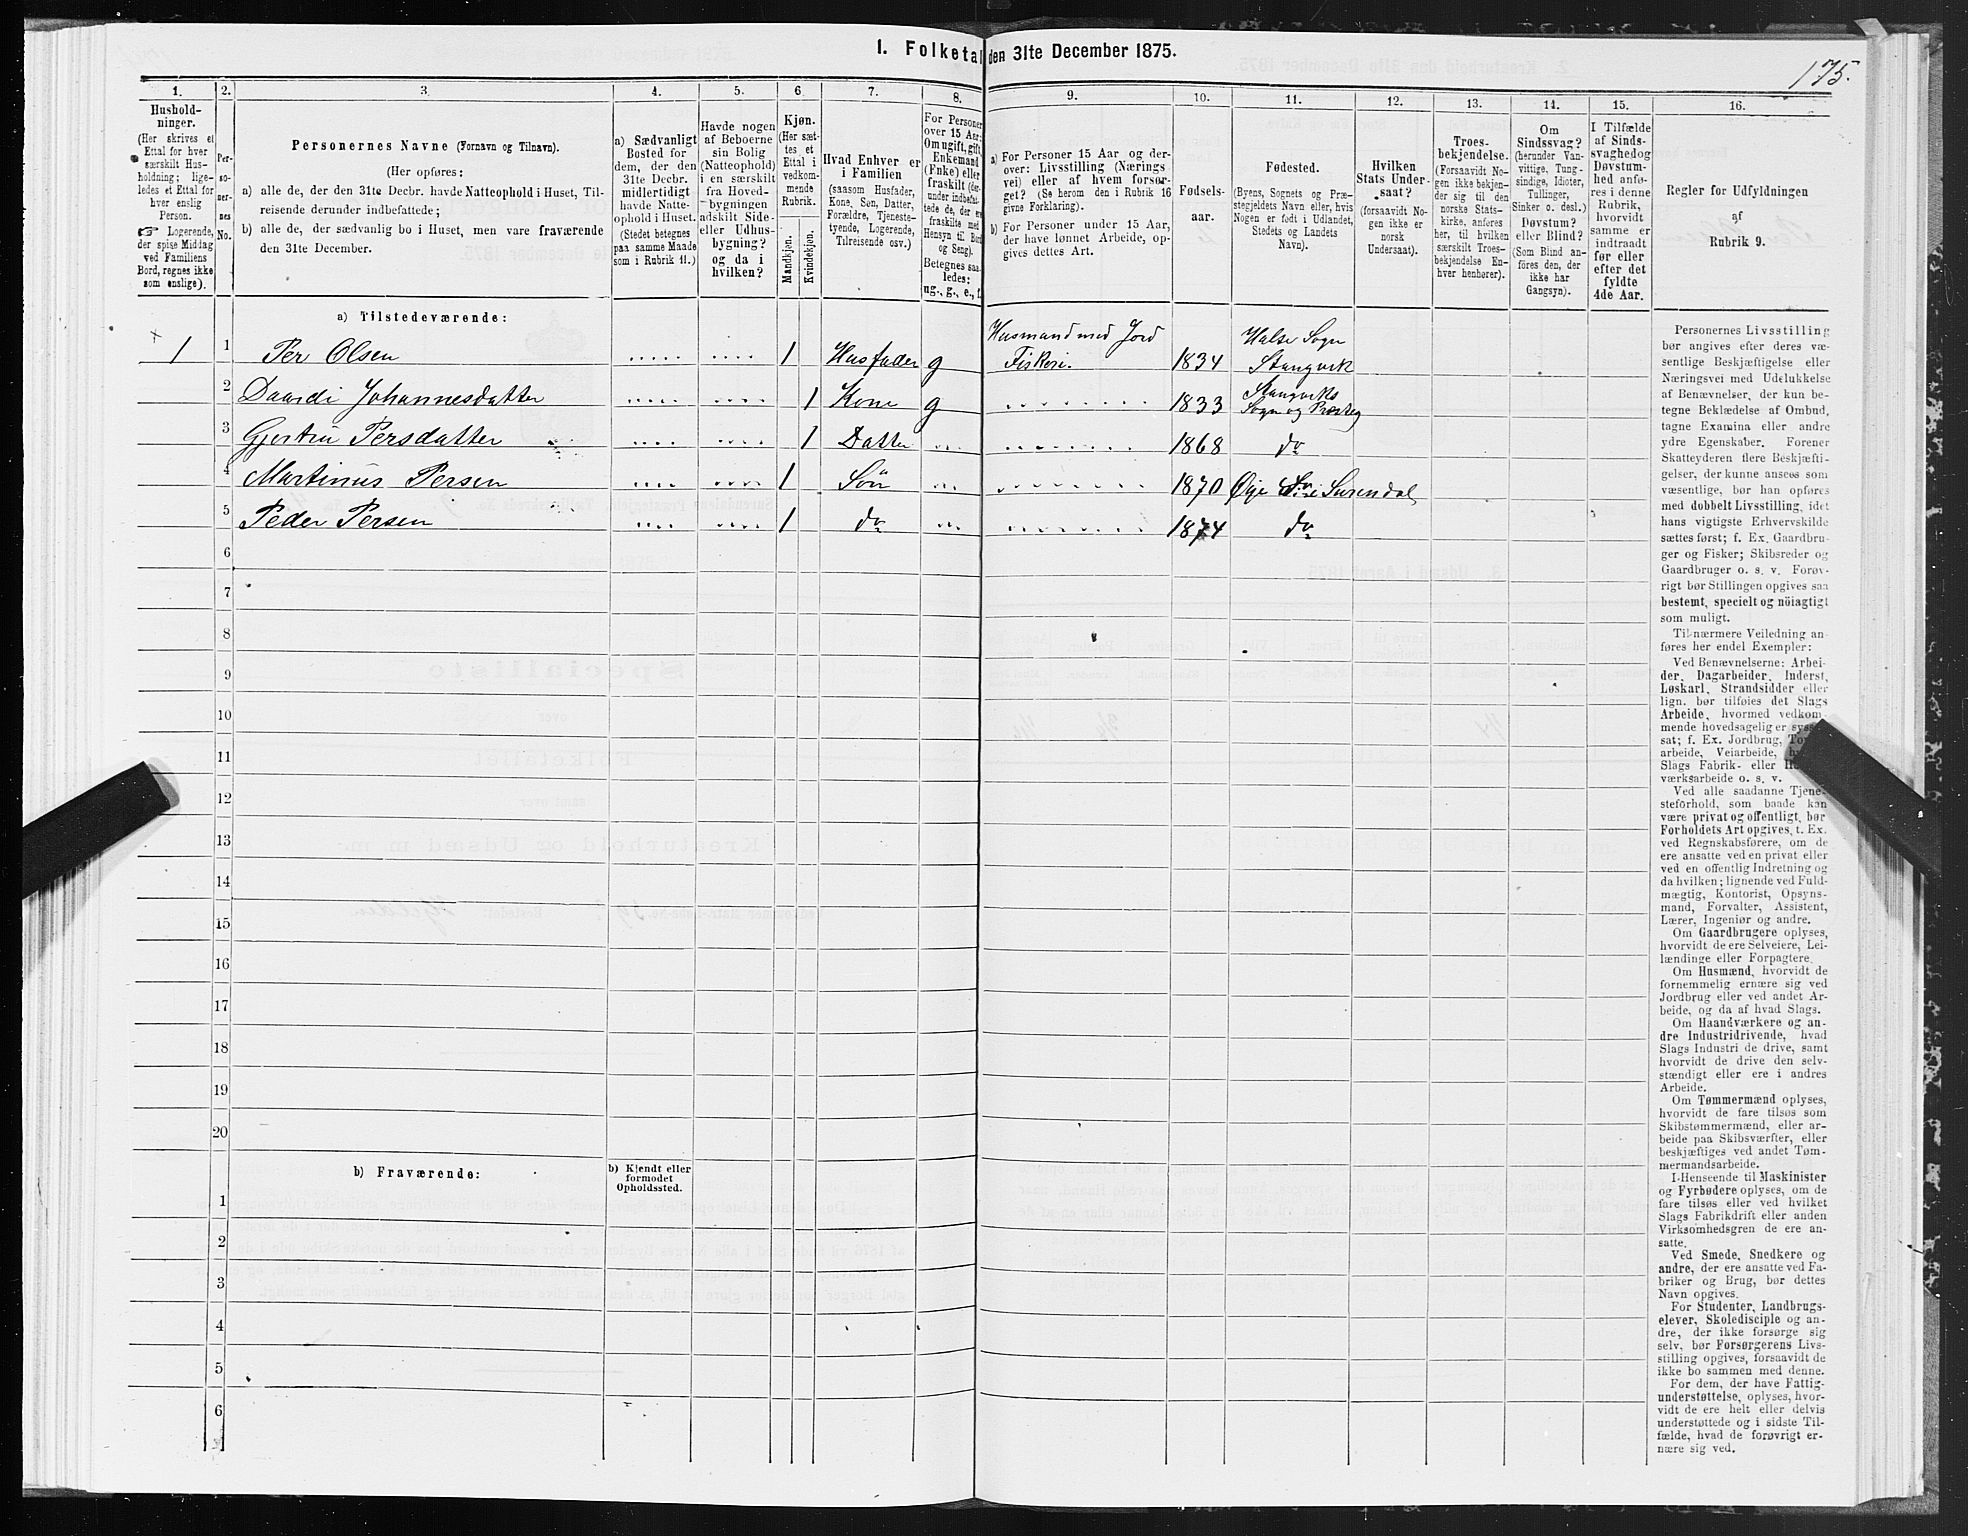 1. Folketal den 31te December 1875.
175.
1.
2.
3.
4.
5.
6.
7.
8.
9.
10.
11.
12.
13.
14.
15.
16.
Hushold-
ninger.
(Her skrives et
Ettal for hver
særskilt Hus-
holdning; lige-
ledes et Ettal for
hver enslig
Person.
☞ Logerende,
der spise Middag
ved Familiens
Bord, regnes ikke
som enslige).
Per-
so-
ner-
nes
No.
Personernes Navne (Fornavn og Tilnavn).
(Her opføres:
a) alle de, der den 31te Decbr. havde Natteophold i Huset, Til-
reisende derunder indbefattede;
b) alle de, der sædvanlig bo i Huset, men vare fraværende
den 31te December.
a) Sædvanligt
Bosted for
dem, der den
31te Decbr.
midlertidigt
havde Natte-
ophold i Huset.
(Stedet betegnes
paa samme Maade
som i Rubrik 11.)
Havde nogen
af Beboerne
sin Bolig
(Natteophold)
i en særskilt
fra Hoved-
bygningen
adskilt Side-
eller Udhus-
bygning?
og da i
hvilken?
Kjøn.
(Her sæt-
tes et
Ettal i
vedkom-
mende
Rubrik.
Mandkjøn.
Kvindekjøn.
Hvad Enhver er
i Familien
(saasom Husfader,
Kone, Søn, Datter,
Forældre, Tjeneste-
tyende, Logerende,
Tilreisende osv.)
For Personer
over 15 Aar:
Om ugift, gift,
Enkemand
(Enke) eller
fraskilt (der-
under indbefat-
tede de, der ere
fraskilte med
Hensyn til Bord
og Seng).
Betegnes saa-
ledes:
ug., g., e., f.
a) For Personer 15 Aar og der-
over: Livsstilling (Nærings
vei) eller af hvem forsør-
get? (Se herom den i Rubrik 16
givne Forklaring).
b) For Personer under 15 Aar,
der have lønnet Arbeide, op-
gives dettes Art.
Fødsels-
aar.
Fødested.
(Byens, Sognets og Præ-
stegjeldets Navn eller, hvis
Nogen er født i Udlandet,
Stedets og Landets
Navn).
Hvilken
Stats Under-
saat?
(forsaavidt No-
gen ikke er
norsk
Undersaat).
Troes-
bekjendelse.
(Forsaavidt No-
gen ikke bekjen-
der sig til den
norske Stats-
kirke, anføres
her, til hvilken
særskilt Troes-
bekjendelse En-
hver henhører).
Om
Sindssvag?
(herunder Van-
vittige, Tung-
sindige, Idioter,
Tullinger,
Sinker o. desl.)
Døvstum?
eller Blind?
(Som Blind an-
føres den, der
ikke har
Gangsyn).
I Tilfælde
af Sinds-
svaghed og
Døvstum-
hed anfø-
res i denne
Rubrik,
hvorvidt
samme er
indtraadt
før eller
efter det
fyldte
4de Aar.
Regler for Udfyldningen
af
Rubrik 9.
a) Tilstedeværende:
1 1 Per Olsen 1 Husfader g Husmand med Jord Fiskeri. 1834 Halse Sogn Stangvik
2 Daardi Johannesdatter 1 Kone g 1833 Stangviks Sogn og Præsteg
3 Gjertru Persdatter 1 Datter 1868 do
4 Martinus Persen 1 Søn 1870 Øye Surendal
5 Peder Persen 1 do 1874 do
6
7
8
9
10
11
12
13
14
15
16
17
18
19
20
b) Fraværende:
b) Kjendt eller
formodet
Opholdssted.
1
2
3
4
5
6
Personernes Livsstilling
bør angives efter deres væ-
sentlige Beskjæftigelse eller
Næringsvei med Udelukkelse
af Benævnelser, der kun be-
tegne Beklædelse af Ombud,
tagne Examina eller andre
ydre Egenskaber. Forener
Skatteyderen flere Beskjæfti-
gelser, der kunne ansees som
væsentlige, bør han opføres
med dobbelt Livsstilling, idet
hans vigtigste Erhvervskilde
sættes først; f. Ex. Gaardbru-
ger og Fisker; Skibsreder og
Gaardbruger o. s. v. Forøv-
rigt bør Stillingen opgives saa
bestemt, specielt og nöiagtigt
som muligt.
Til nærmere Veiledning an-
føres her endel Exempler:
Ved Benævnelserne: Arbei-
der, Dagarbeider, Inderst,
Løskarl, Strandsidder eller
lign. bør tilføies det Slags
Arbeide, hvormed vedkom-
mende hovedsagelig er syssel-
sat; f. Ex. Jordbrug,
arbeide, Veiarbeide,
Slags Fabrik- eller
værksarbeide o. s. v.
Ved alle saadanne Tjene-
steforhold, som baade kan
være privat og offentligt, bør
Forholdets Art opgives, t. Ex.
ved Regnskabsførere, om de
ere ansatte ved en privat eller
ved en offentlig Indretning og
da hvilken; lignende ved Fuld-
mægtig, Kontorist, Opsyns-
mand, Forvalter, Assistent,
Lærer, Ingeniør og andre.
Om Gaardbrugere oplyses,
hvorvidt de ere Selveiere, Lei-
lændinge eller Forpagtere.
Om Husmænd, hvorvidt de
fornemmelig ernære sig ved
Jordbrug eller ved andet Ar-
beide, og da af hvad Slags.
Om Haandværkere og an-
dre Industridrivende, hvad
Slags Industri de drive, samt
hvorvidt de drive den selv-
stændigt eller ere i andres
Arbeide.
Om Tømmermænd oplyses,
hvorvidt de fare tilsøs som
Skibstømmermænd, eller ar-
beide paa Skibsværfter, eller
beskjæftiges ved andet Tøm-
mermandsarbeide.
I Henseende til Maskinister
og Fyrbødere oplyses, om de
fare tilsøs eller ved hvilket
Slags Fabrikdrift eller anden
Virksomhedsgren de ere an-
satte.
Ved Smede, Snedkere og
andre, der ere ansatte ved Fa-
briker og Brug, bør dettes
Navn opgives.
For Studenter, Landbrugs-
elever, Skoledisciple og an-
dre, der ikke forsørge sig
selv, bør Forsørgerens Livs-
stilling opgives, forsaavidt de
ikke bo sammen med denne.
For dem, der have Fattig-
understøttelse, oplyses, hvor-
vidt de ere helt eller delvis
understøttede og i sidste Til-
fælde, hvad de forøvrigt er-
nære sig ved.